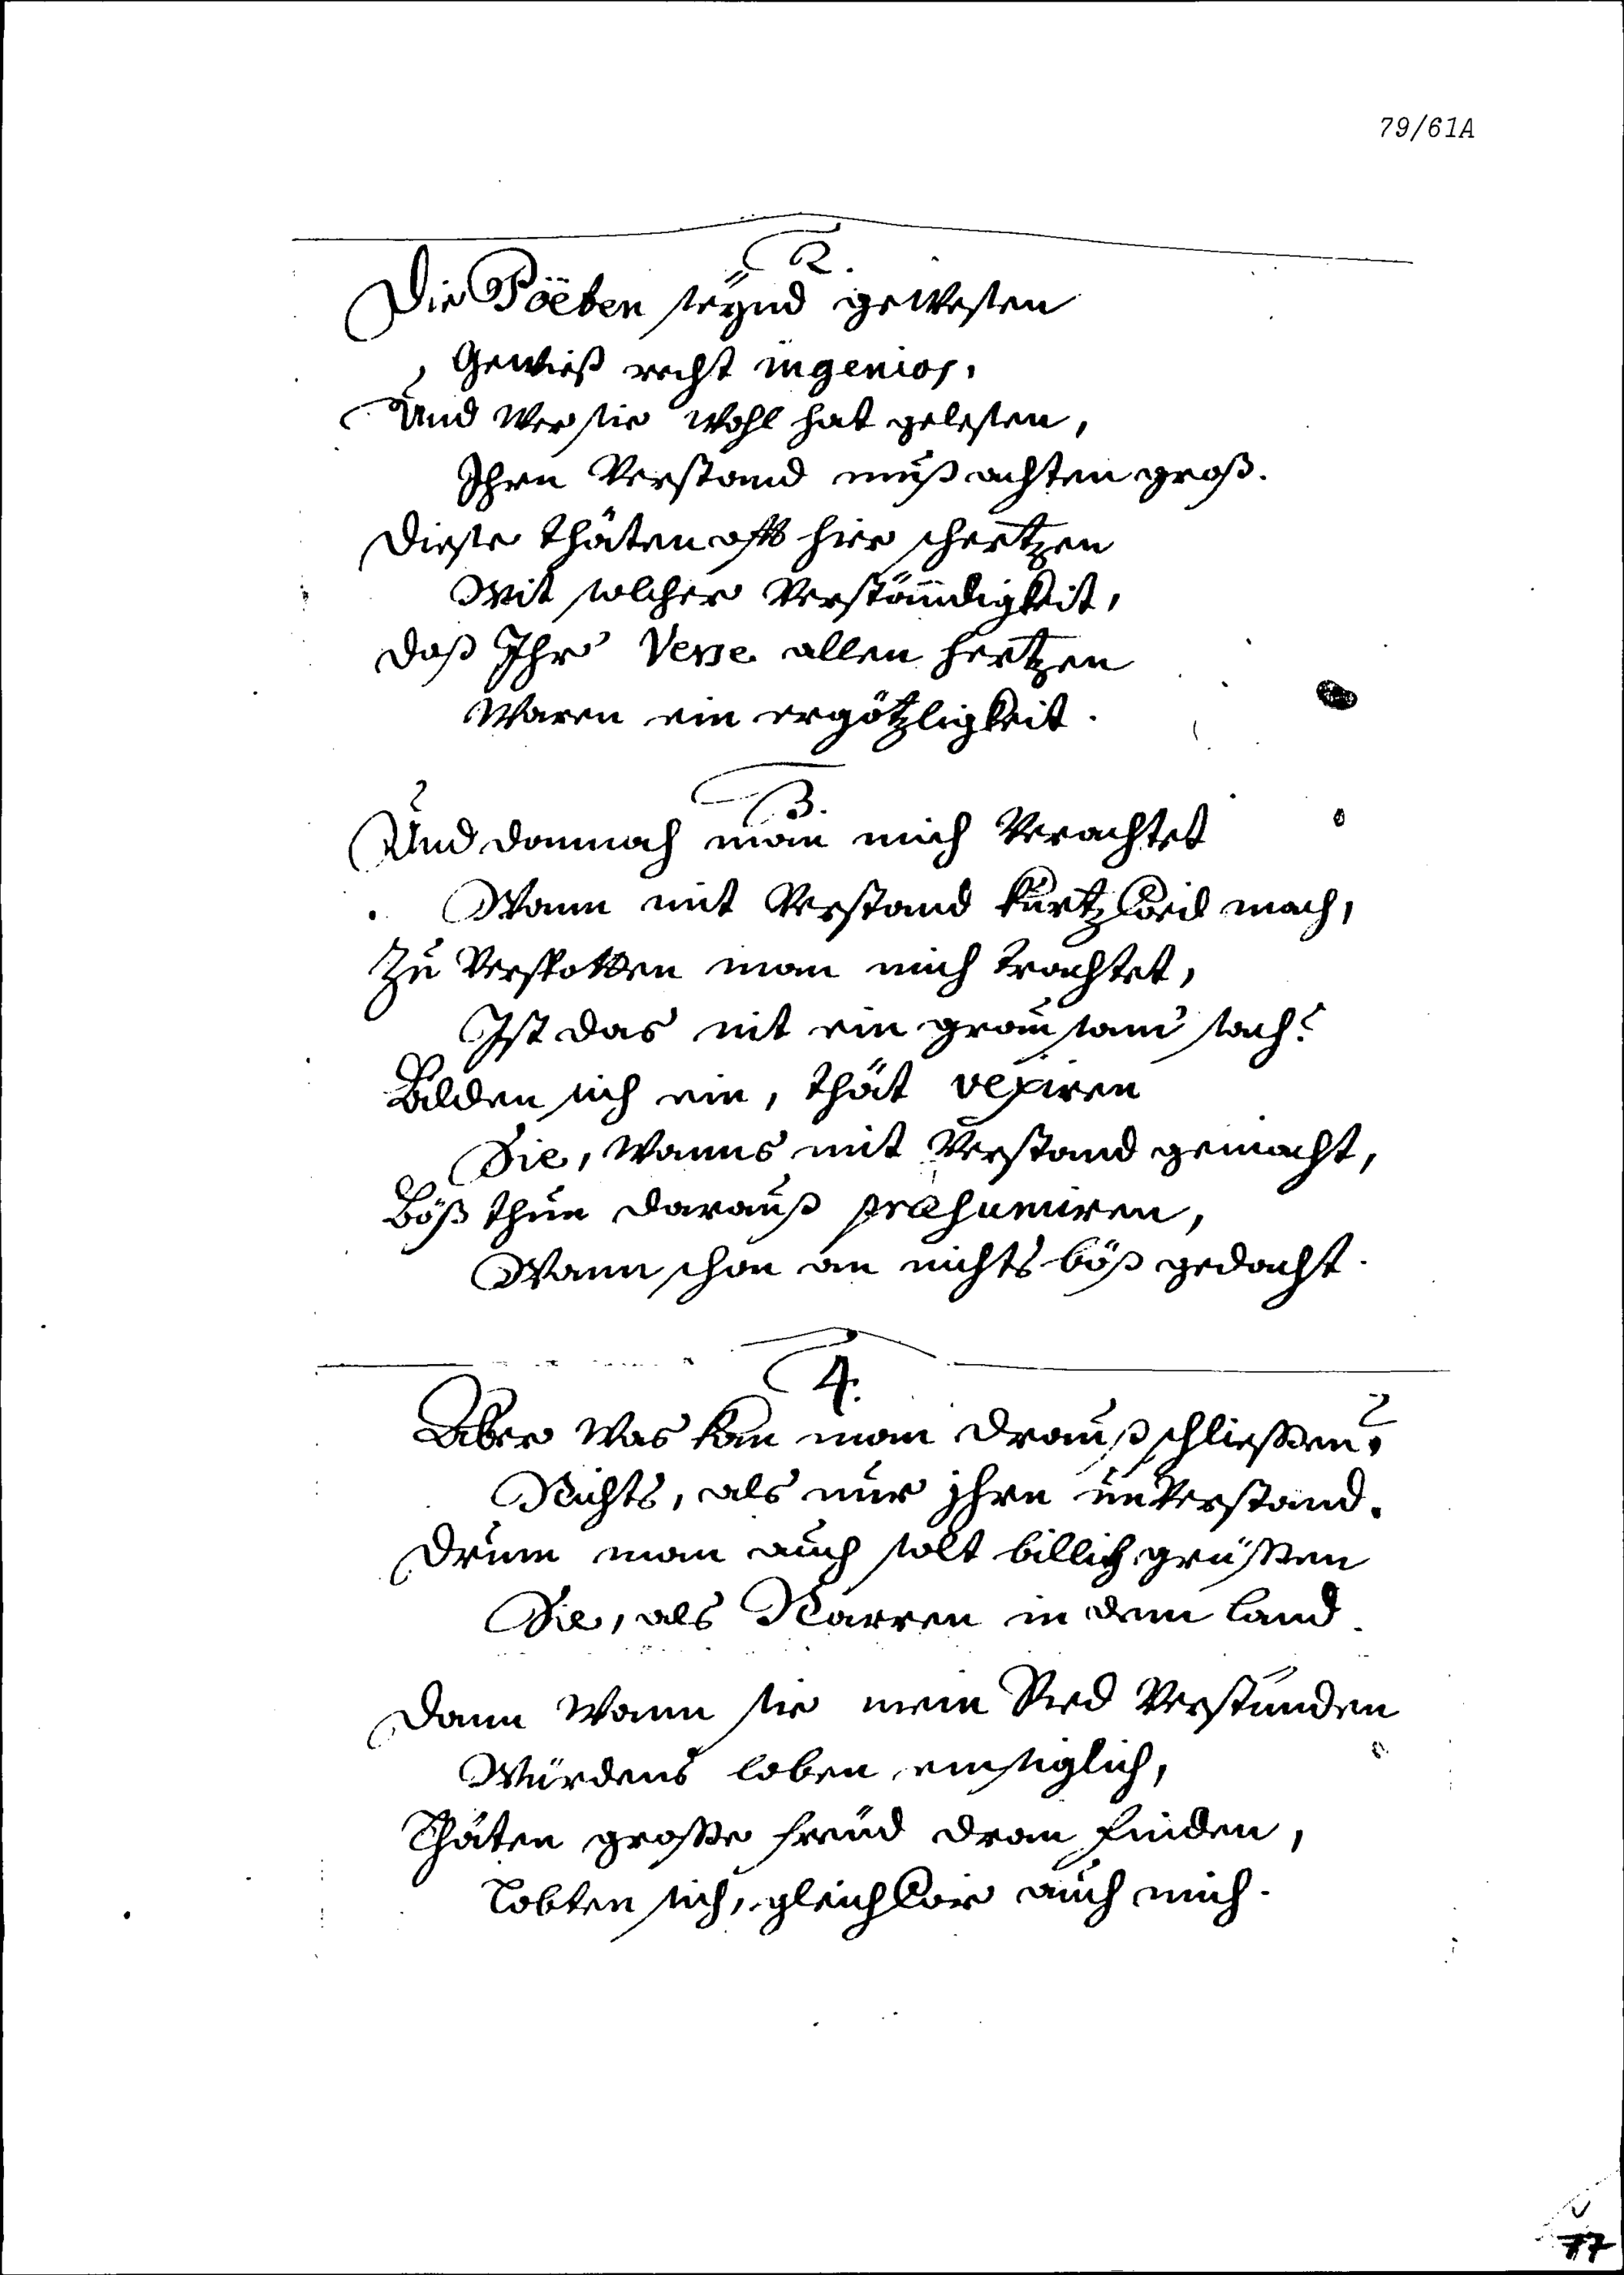 79/61A
2.
Die Pöëten seÿnd gewesen
Gewieß recht ingenios,
Und wer sie wohl hat gelesen,
Ihrn Verstand muß achten groß.
Diese thäten offt hier schertzen
Mit solcher Verständigkeit,
Daß Ihr Verse allen hertzen
Waren ein ergötzligkeit.
3.
Und dannach man mich Verachtet
Wann mit Verstand kurtzweil mach,
Zu Verspotten man mich trachtet,
Ist das nit ein grausam sach?
Bilden sich ein, thät vexiren
Sie, wanns mit Verstand gemacht,
Böß thun darauß præsumiren,
Wann schon an nichts böß gedacht.
4.
Aber was kan man drauß schliessen?
Nichts, als nur jhrn unVerstand.
Drum man auch solt billich grüssen
Sie, als Narren in dem land.
Dann wann sie mein Red Verstunden
Würdens loben einsiglich,
Thäten grosse freud dran finden,
Lobten sich, gleichwie auch mich.
77